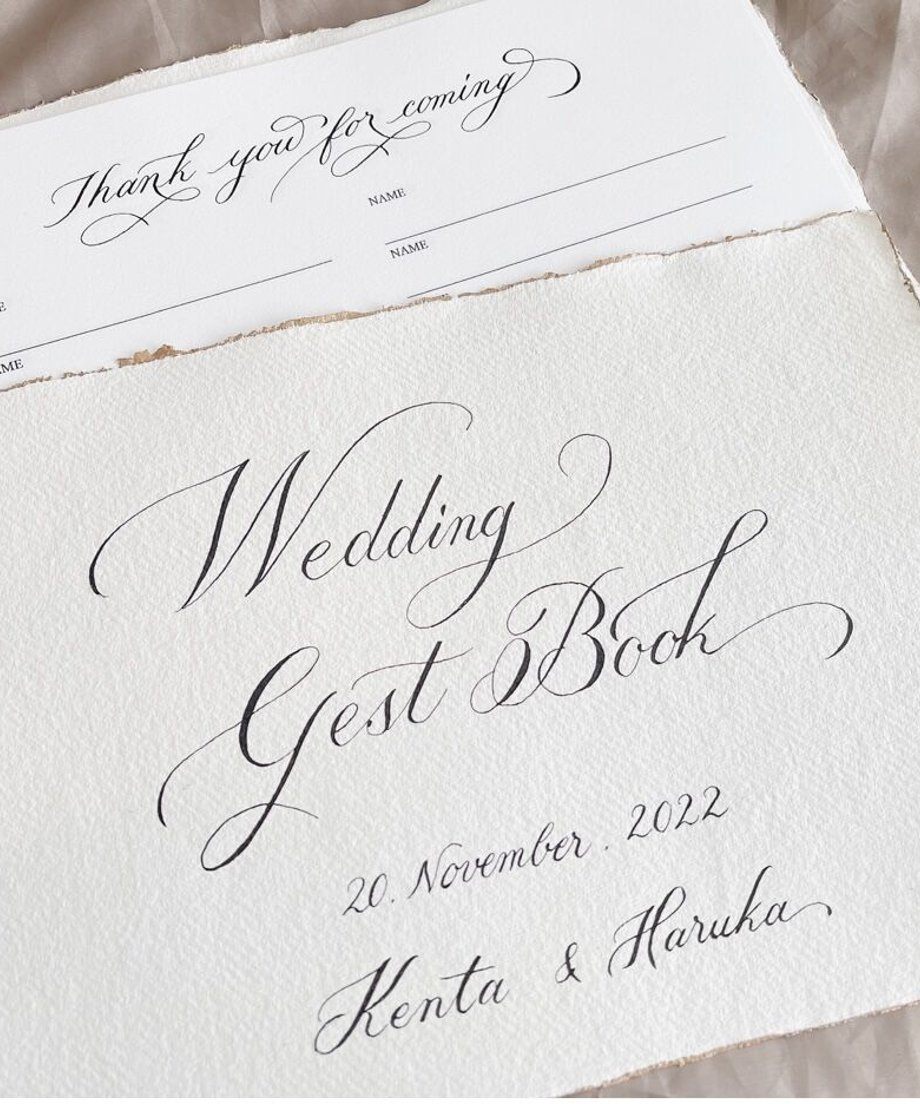 Thank you for coming
NAME
NAME
Wedding
Gest Book
20. November. 2022
Kenta & Haruka